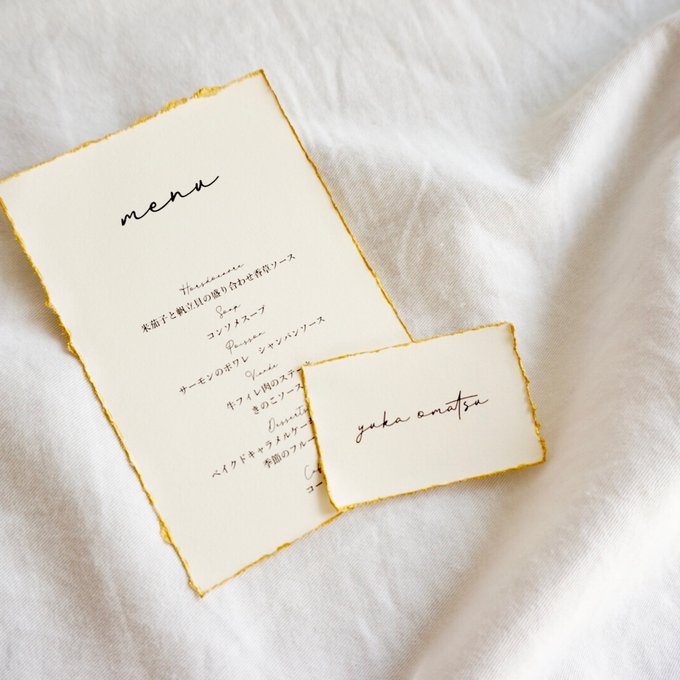 menu
Horsdoeuvre
米茄子と帆立貝の盛り合わせ香草ソース
Soup
コンソメスープ
Poisson
サーモンのポワレ シャンパンソース
Viande
牛フィレ肉のステー
きのこソース
Desserts
ベイクドキャラメルケー
季節のフルー
コー
yuka omatsu